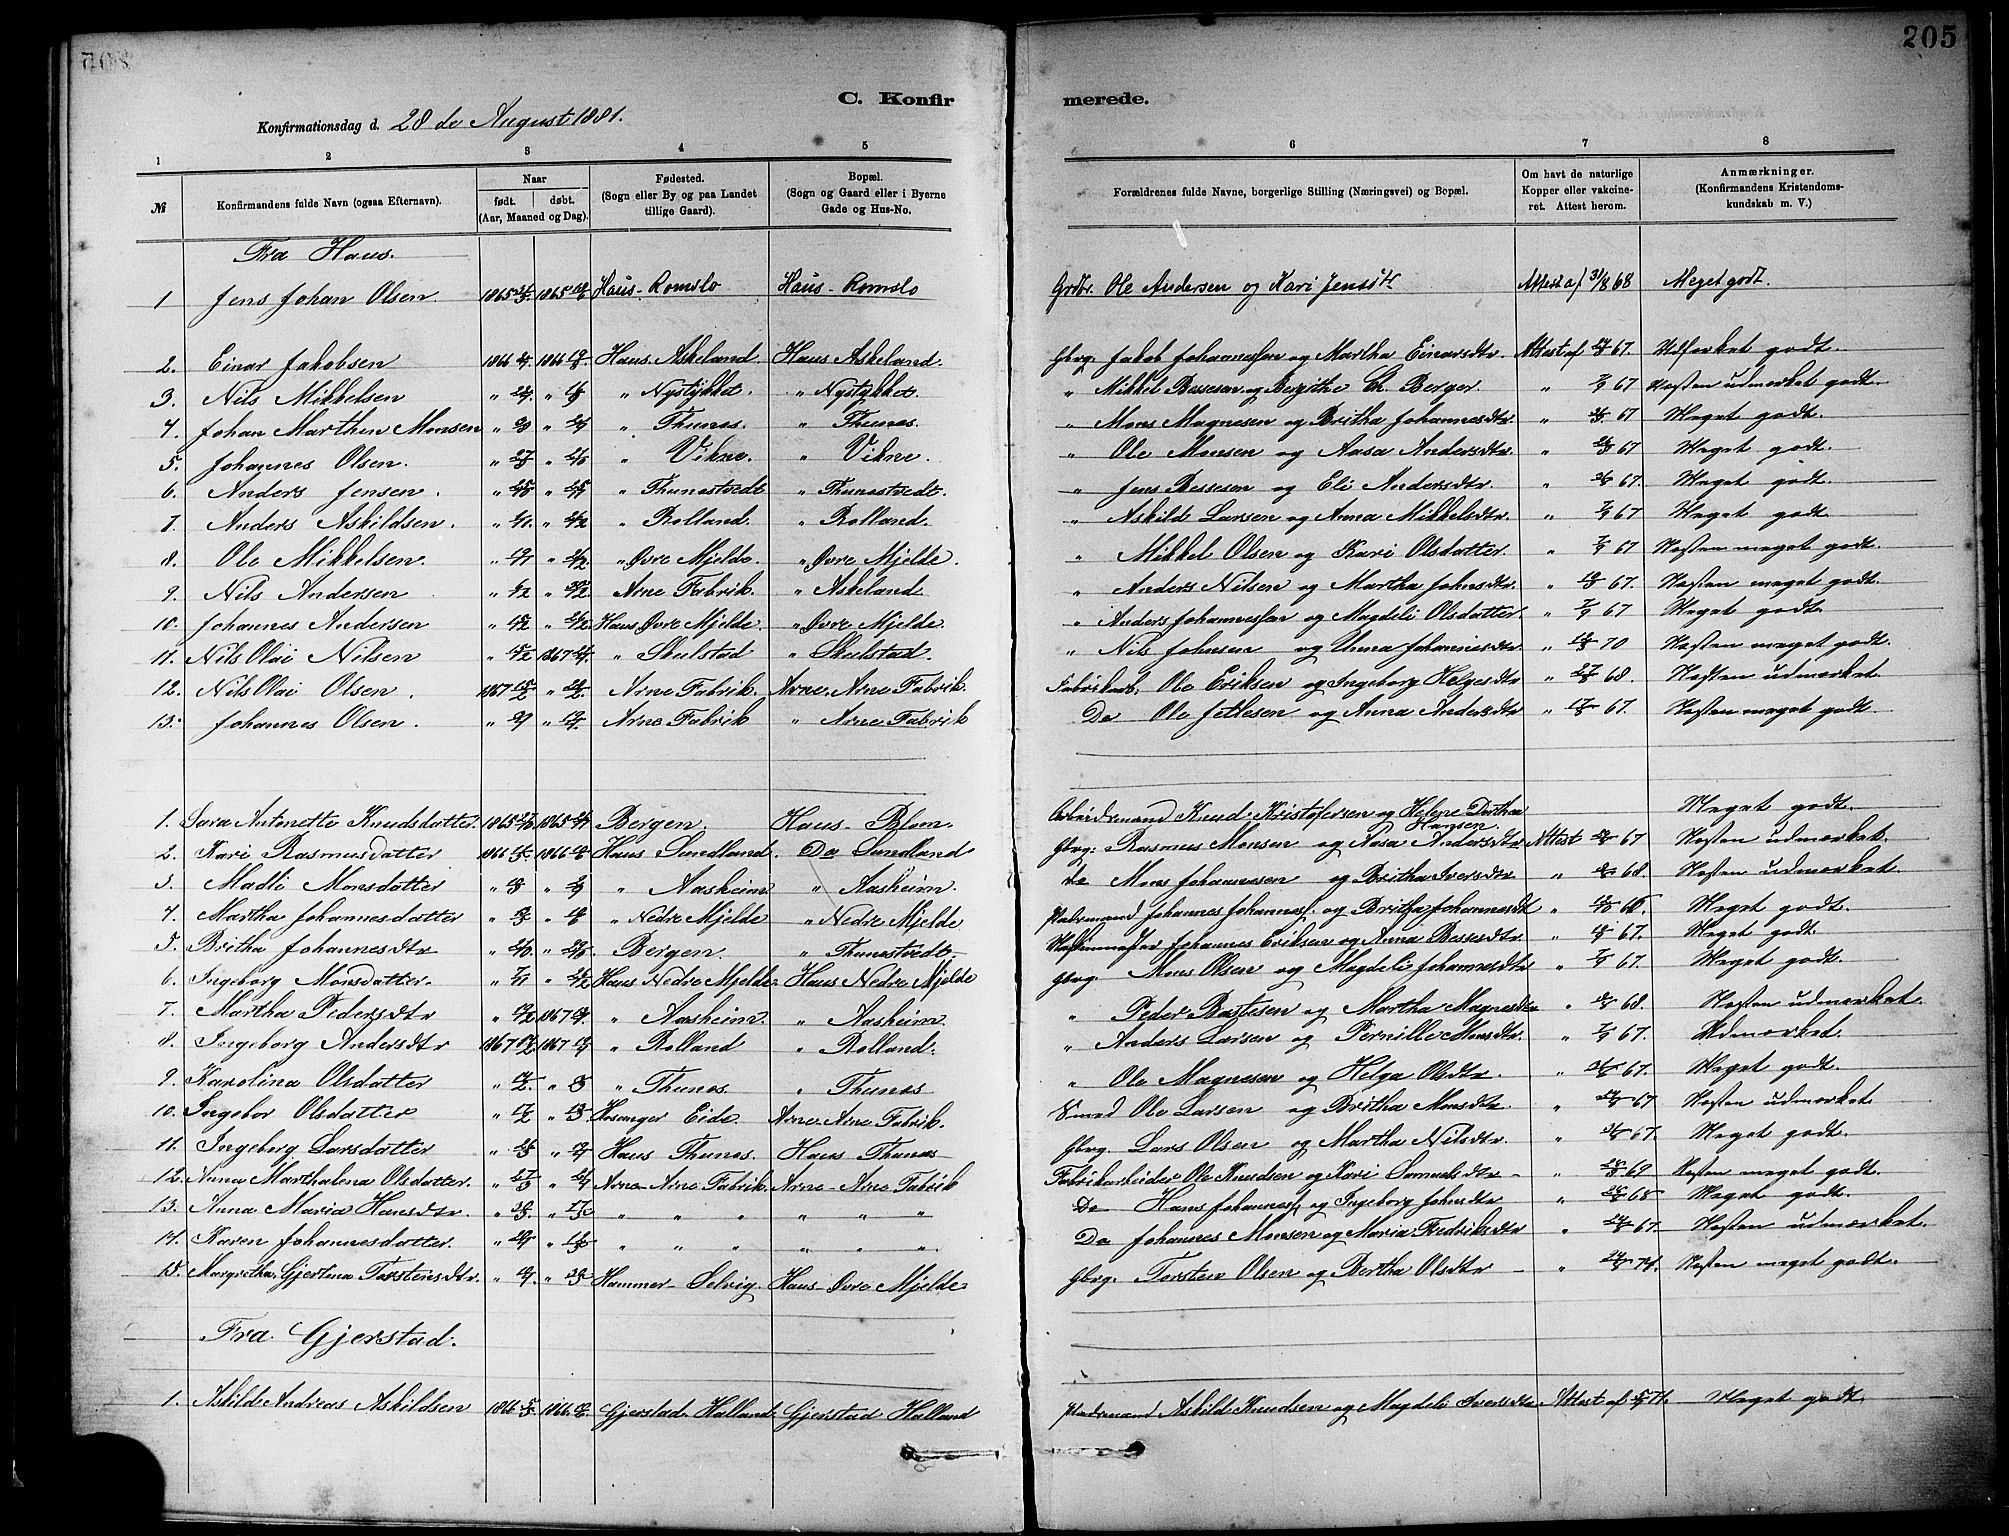 205
C. Konfir merede.
Konfirmationsdag d. 28de August 1881.
1 2 3 4 5 6 7 8
№ Konfirmandens fulde Navn (ogsaa Efternavn). Naar født. døbt. (Aar, Maaned og Dag). Fødested. (Sogn eller By og paa Landet tillige Gaard). Bopæl. (Sogn og Gaard eller i Byerne Gade og Hus-No. Forældrenes fulde Navne, borgerlige Stilling (Næringsvei) og Bopæl. Om havt de naturlige Kopper eller vakcineret. Attest herom. Anmærkninger. (Konfirmandens Kristendomskundskab m. V.)
Fra Haus.
1 Jens Johan Olsen 1865 1865 Haus - Romslo Haus - Romslo Grdbr. Ole Andersen og Kari Jensdtr Attest af 31/8 68 Meget godt.
2. Einar Jakobsen 1866 1866 Haus Askeland. Haus Askeland. Gbrg. Jakob Johannessen og Martha Einarsdtr. Attest af 67. Udmerket godt.
3. Nils Mikkelsen " " " Nystykket. " Nystykket. " Mikkel Bessesen og Bergithe Ch. Berger " 67 Næsten udmerket godt
4. Johan Marthen Monsen " " " Thunes. " Thunes. " Mons Magnesen og Britha Johannesdtr. " 67 Meget godt.
5. Johannes Olsen. " " " Vikne. " Vikne. " Ole Monsen og Aasa Andersdtr. " 67 Meget godt.
6. Anders Jensen. " " " Thunestvedt " Thunestvedt. " Jens Bessesen og Eli Andersdtr " 67. Meget godt.
7. Anders Askildsen. " " " Rolland. " Rolland. " Askild Larsen og Anna Mikkelsdtr. " 67 Meget godt
8. Ole Mikkelsen. " " " Øvre Mjelde. " Øvre Mjelde. " Mikkel Olsen og Kari Olsdatter " 67 Næsten meget godt.
9. Nils Andersen " " Arne Fabrik. " Askeland " Anders Nilsen og Martha Johnsdtr. " 67. Næsten meget godt.
10. Johannes Andersen " " Haus Øvre Mjelde. " Øvre Mjelde. " Anders Johannessen og Magdeli Olsdatter. " 67 Meget godt
11. Nils Olai Nilsen " 1867 " Skulstad " Skulstad. " Nils Johnsen og Unna Johannesdtr. " 70 Næsten meget godt.
12. Nils Olai Olsen. 1867 " Arne Fabrik. Arne. Arne Fabrik. Fabrikarb. Ole Eriksen og Ingeborg Helgesdtr " 68. Næsten udmerket
13. Johannes Olsen. " " Arne Fabrik " Arne Fabrik Do Ole Jetlesen og Anna Andersdtr " 67. Næsten meget godt
1. Sara Antonette Knudsdatter. 1865 1865 Bergen. Haus - Blom. Arbeidsmand Knud Kristofersen og Helene Dorthea Hansen. Meget godt.
2. Kari Rasmusdatter 1866 1866 Haus Sundland. Do Sundland Gbrg: Rasmus Monsen og Aasa Andersdtr Attest 67 Næsten udmerket.
3. Madli Monsdatter " " " Aasheim " Aasheim. Do Mons Johannesen og Britha Iversdtr " 68. Næsten udmerket.
4. Martha Johannesdatter " " " Nedre Mjelde " Nedre Mjelde Pladsmand Johannes Johannes. og Britha Johannesdt " Meget godt.
5. Britha Johannesdtr " " Bergen. " Thunestvedt. Johannes Eriksen og Anna Bessesdtr. " 67. Meget godt.
6. Ingeborg Monsdatter. " " Haus Nedre Mjelde. Haus Nedre Mjelde Gbrg. Mons Olsen og Magdeli Johannesdtr " 67. Meget godt.
7. Martha Pedersdtr " 1867 " Aasheim. " Aasheim. " Peder Bastesen og Martha Magnesdtr " 68. Næsten udmerket.
8. Ingeborg Andersdtr 1867 1867 " Rolland " Rolland. " Anders Larsen og Pernille Monsdtr. " 67. Udmerket.
9. Karolina Olsdatter " " " Thunes. " Thunes " Ole Magnesen og Helga Olsdtr. " 67. Meget godt.
10. Ingebor Olsdatter " " Hosanger Eide. Arne. Arne Fabrik. Smed Ole Larsen og Britha Monsdtr. " 67 Næsten udmerket.
11. Ingeborg Larsdatter " " Haus Thunes. Haus Thunes Gbrg. Lars Olsen og Martha Nilsdtr. " 67. Meget godt.
12. Anna Marthalena Olsdatter. " " Arne - Arne Fabrik. Arne - Arne Fabrik Fabrikarbeider Ole Knudsen og Kari Samuelsdtr " 69 Næsten meget godt.
13. Anna Maria Hansdtr. " " " " " " " " Do Hans Johannes. og Ingeborg Johnsdtr " 68 Meget godt.
14. Karen Johannesdatter. " " " " " " " " Do Johannes Monsen og Maria Fredriksdtr " 67. Næsten udmerket.
15. Margretha Gjertina Torstensdtr. " " Hammer - Selvig. Haus - Øvre Mjelde. Gbrg. Torsten Olsen og Bertha Olsdtr " 74. Næsten meget godt.
Fra Gjerstad.
1. Askild Andreas Askildsen 1866 1866. Gjerstad. Halland. Gjerstad Halland Pladsmand Askild Knudsen og Magdeli Iversdtr. Attest af 71. Meget godt